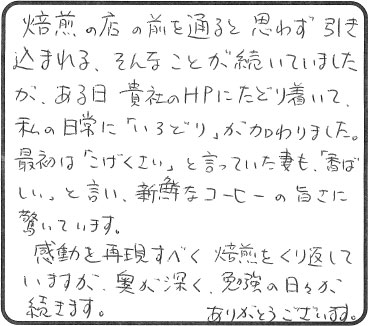 焙煎の店の前を通ると思わず引き
込まれる、そんなことが続いていました
が、ある日 貴社のHPにたどり着いて、
私の日常に「いろどり」が加わりました。
最初は「こげくさい」と言っていた妻も、「香ば
しい」と言い、新鮮なコーヒーの旨さに
驚いています。
感動を再現すべく 焙煎をくり返して
いますが、奥が深く、勉強の日々が
続きます。 ありがとうございます。